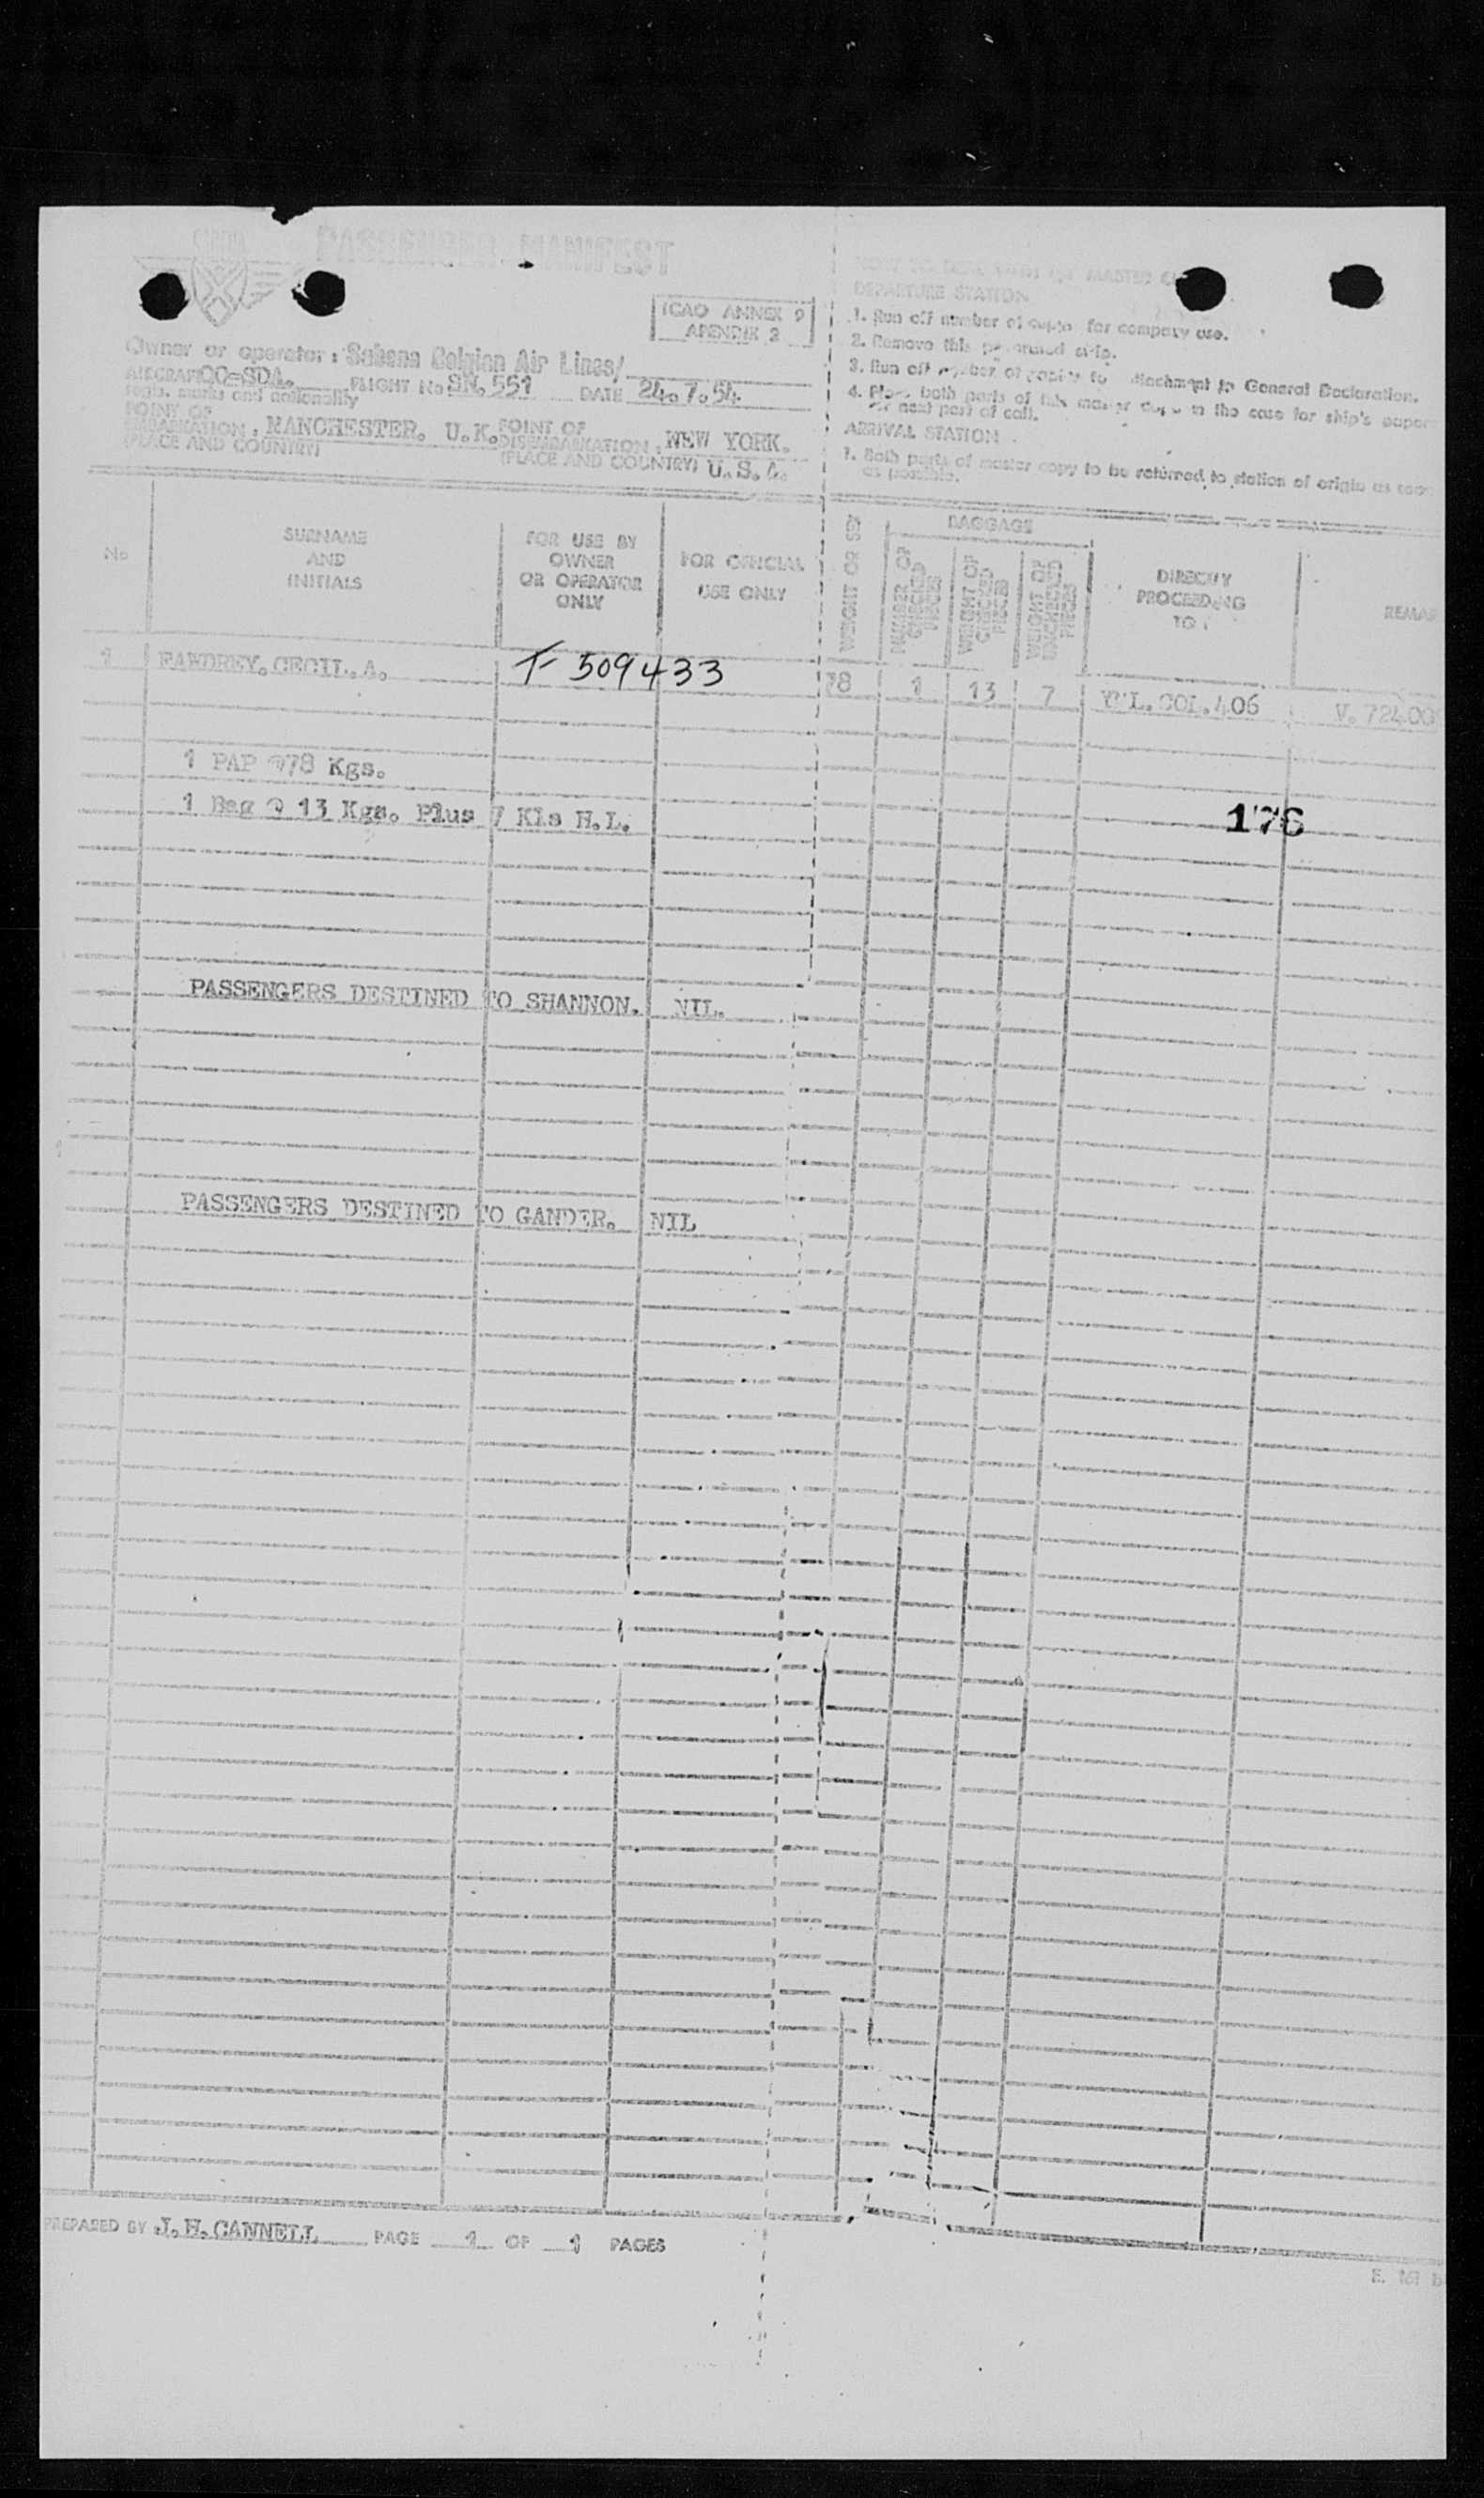 PASSENGER MANIFEST
ICAO ANNEX 9
APENDIX 2
Owner or operator: Sabena Belgian Air Lines/
AIRCRAFT OO-SDA. FLIGHT No SN. 551 DATE 24.7.54
regis. marks and nationality
POINT OF EMBARKATION, MANCHESTER. U.K. POINT OF DISEMBARKATION, NEW YORK.
(PLACE AND COUNTRY) (PLACE AND COUNTRY) U.S.A.
DEPARTURE STATION
1. Run off number of for company use.
2. Remove this strip.
3. Run off number of to attachment to General Declaration.
4. Place both parts of this master in the case for ship's paper
or next port of call.
ARRIVAL STATION
1. Both parts of master copy to be returned to station of origin as soon
as possible.
No
SURNAME
AND
INITIALS
FOR USE BY
OWNER
OR OPERATOR
ONLY
FOR OFFICIAL
USE ONLY
WEIGHT OR SEX
BAGGAGE
NUMBER OF CHECKED PIECES
WEIGHT OF CHECKED PIECES
WEIGHT OF UNCHECKED PIECES
DIRECTLY
PROCEEDING
TO:
REMAR
1 FAWDREY. CECIL. A. T-509433 78 1 13 7 406 V. 72400
1 PAP @78 Kgs.
1 Bag @ 13 Kgs. Plus 7 Kls H.L.
176
PASSENGERS DESTINED TO SHANNON. NIL.
PASSENGERS DESTINED TO GANDER. NIL
PREPARED BY J.H. CANNELL PAGE 1 OF 1 PAGES